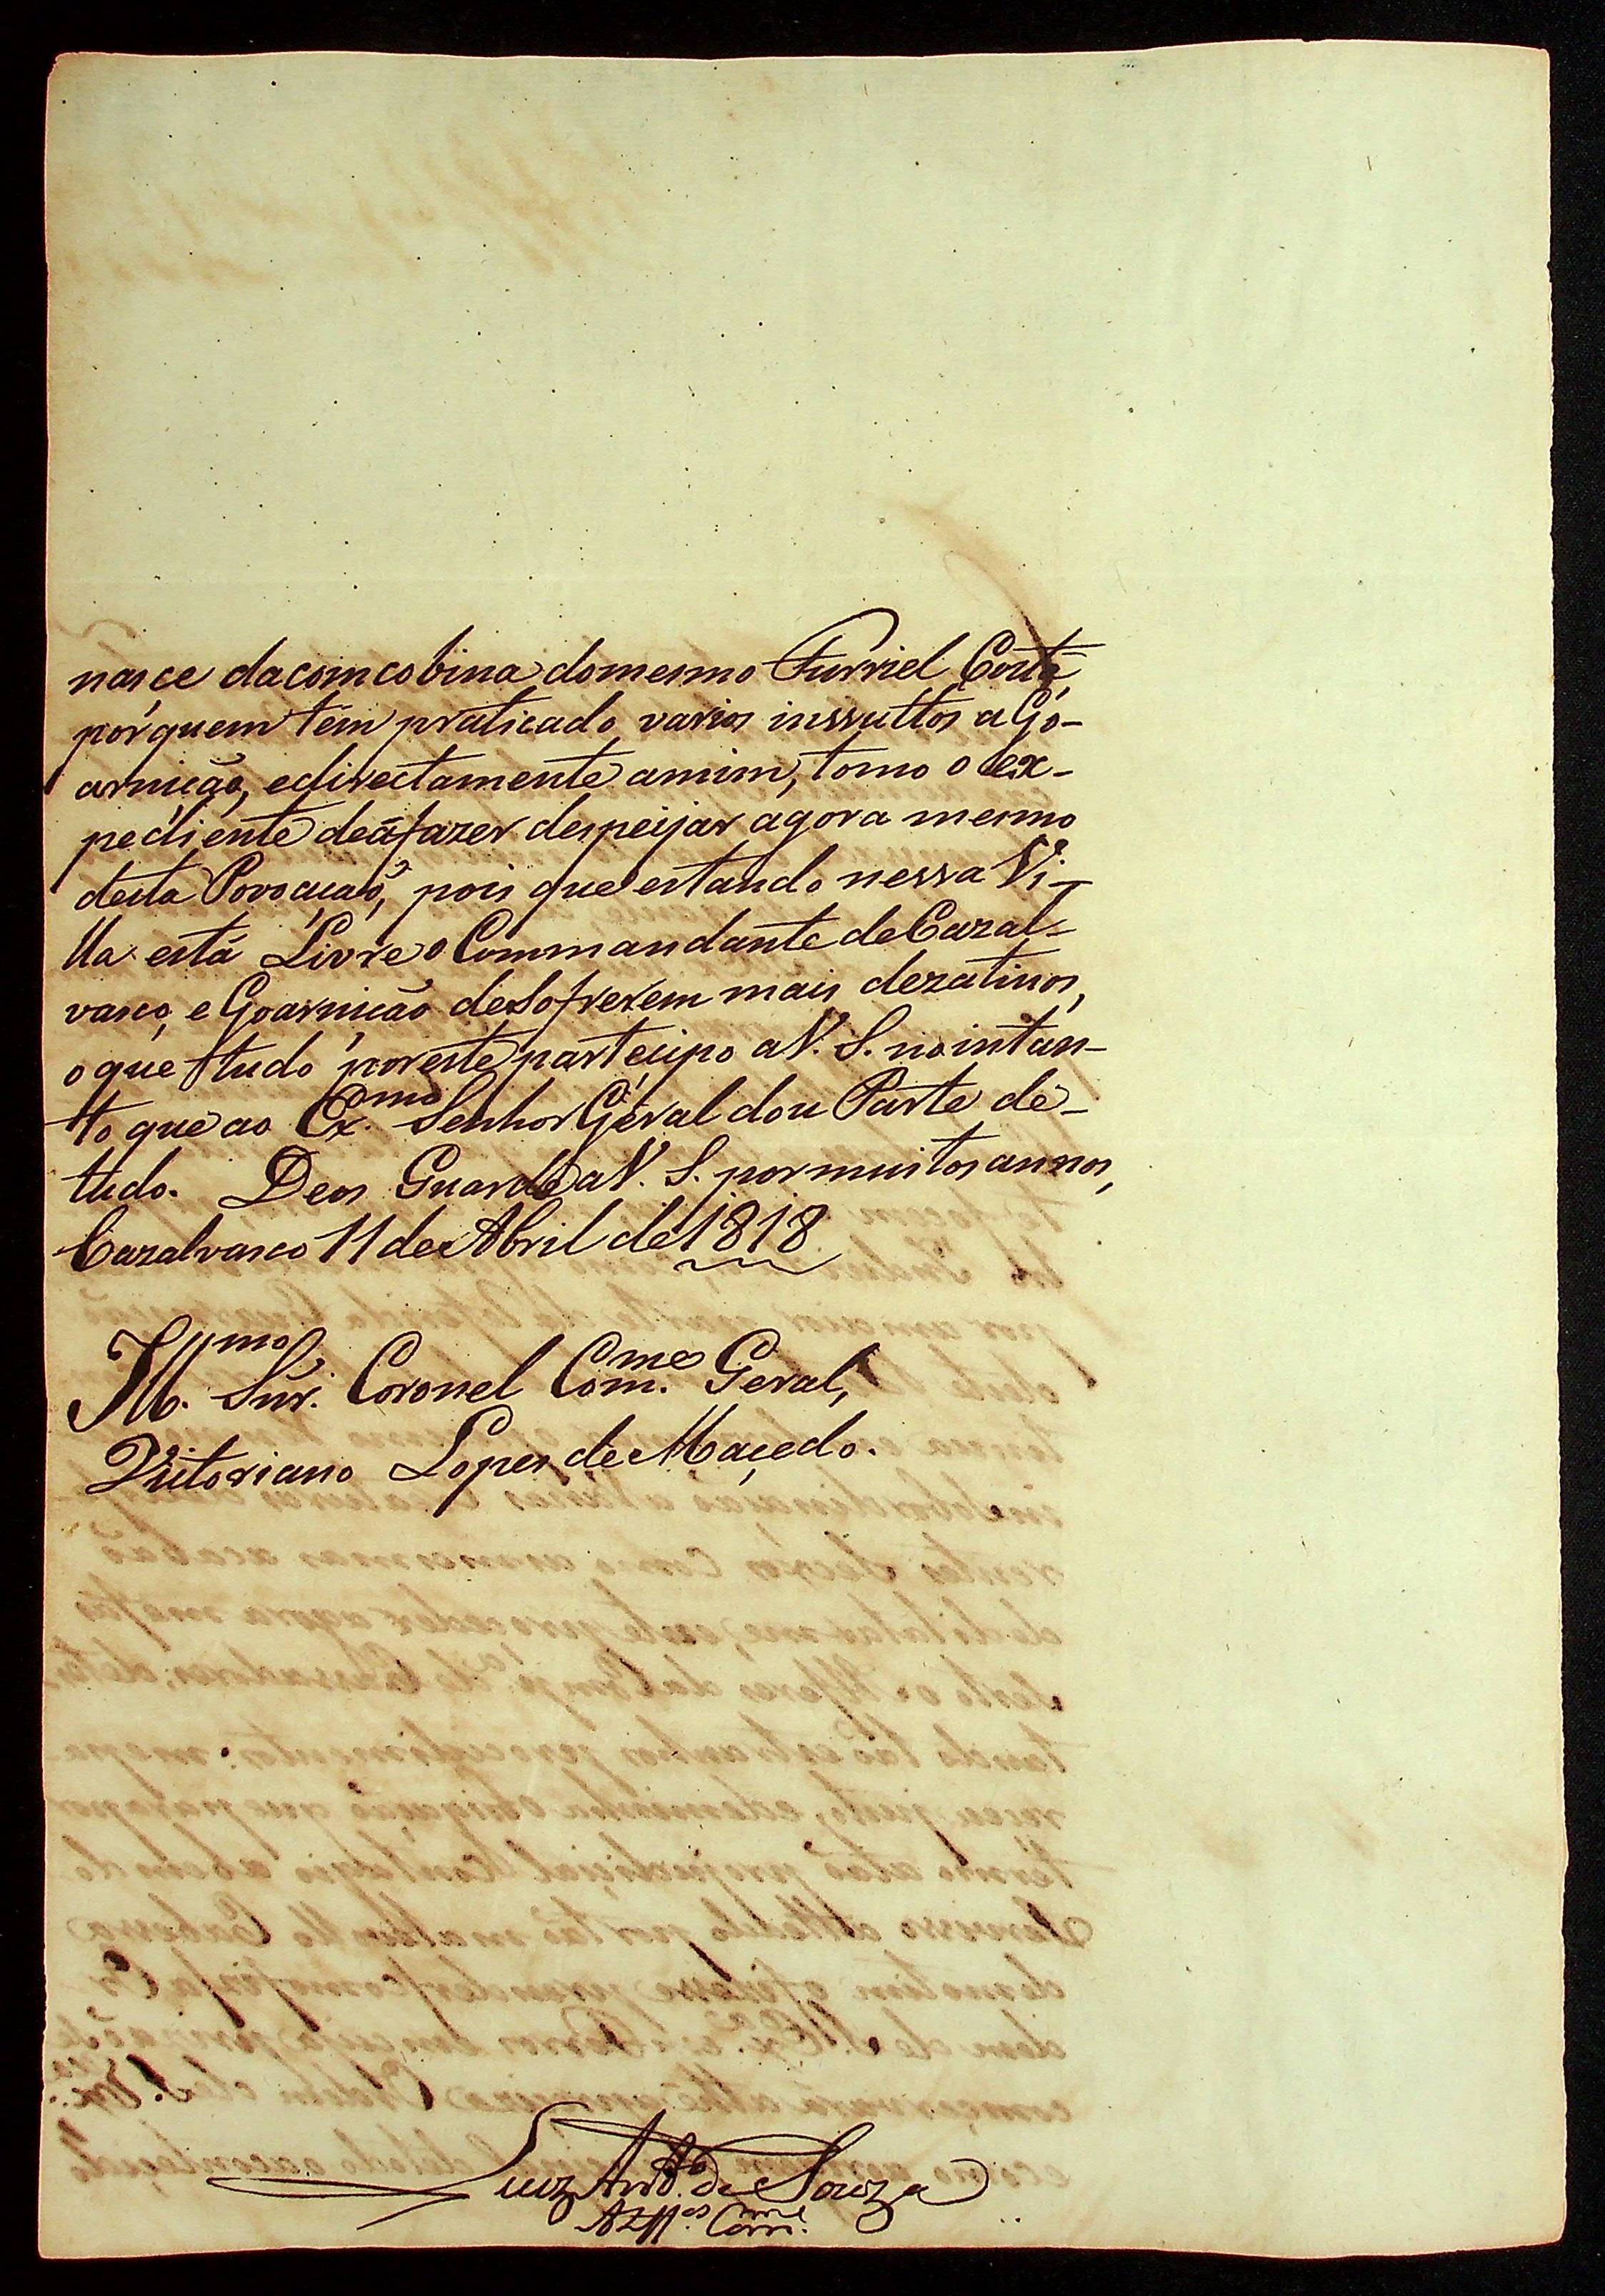 nasce dacomcobina domesmo Furriel Couto,
por quem tem praticado varios inssuttos a Go-
arnição, edirectamente amim, tomo o ex-
pediente deafazer despeijar agora mesmo
desta Povoação, pois que estando nessa Vi-
lla está Livre o Commandante de Cazal-
vasco, e Goarnição deSofrerem mais dezatinos,
oque tudo poreste partecipo aV. S. nointan-
to que ao Ex.mo Senhor Géral dou Parte de-
tudo. Deos Guarde aV. S. pormuitos annos,
Cazalvasco 11 de Abril de 1818
Ill.mo Snr. Coronel Com.me Geral,
Victoriano Lopes de Macedo.
Luiz Ant.o de Souza
Com.me